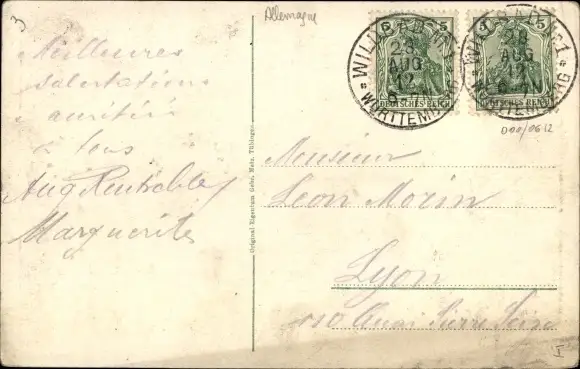 3
Allemagne
Meilleures
salutations
amitiés
à tous
Marguerite
Original Eigentum Gebr. Metz, Tübingen.
WILDBAD
28
AUG
12
WÜRTTEMBERG
5
DEUTSCHES REICH
WILDBAD
28
AUG
12
WÜRTTEMBERG
5
DEUTSCHES REICH
Monsieur
Leon Morin
Lyon
110 Quai Pierre Seize
I